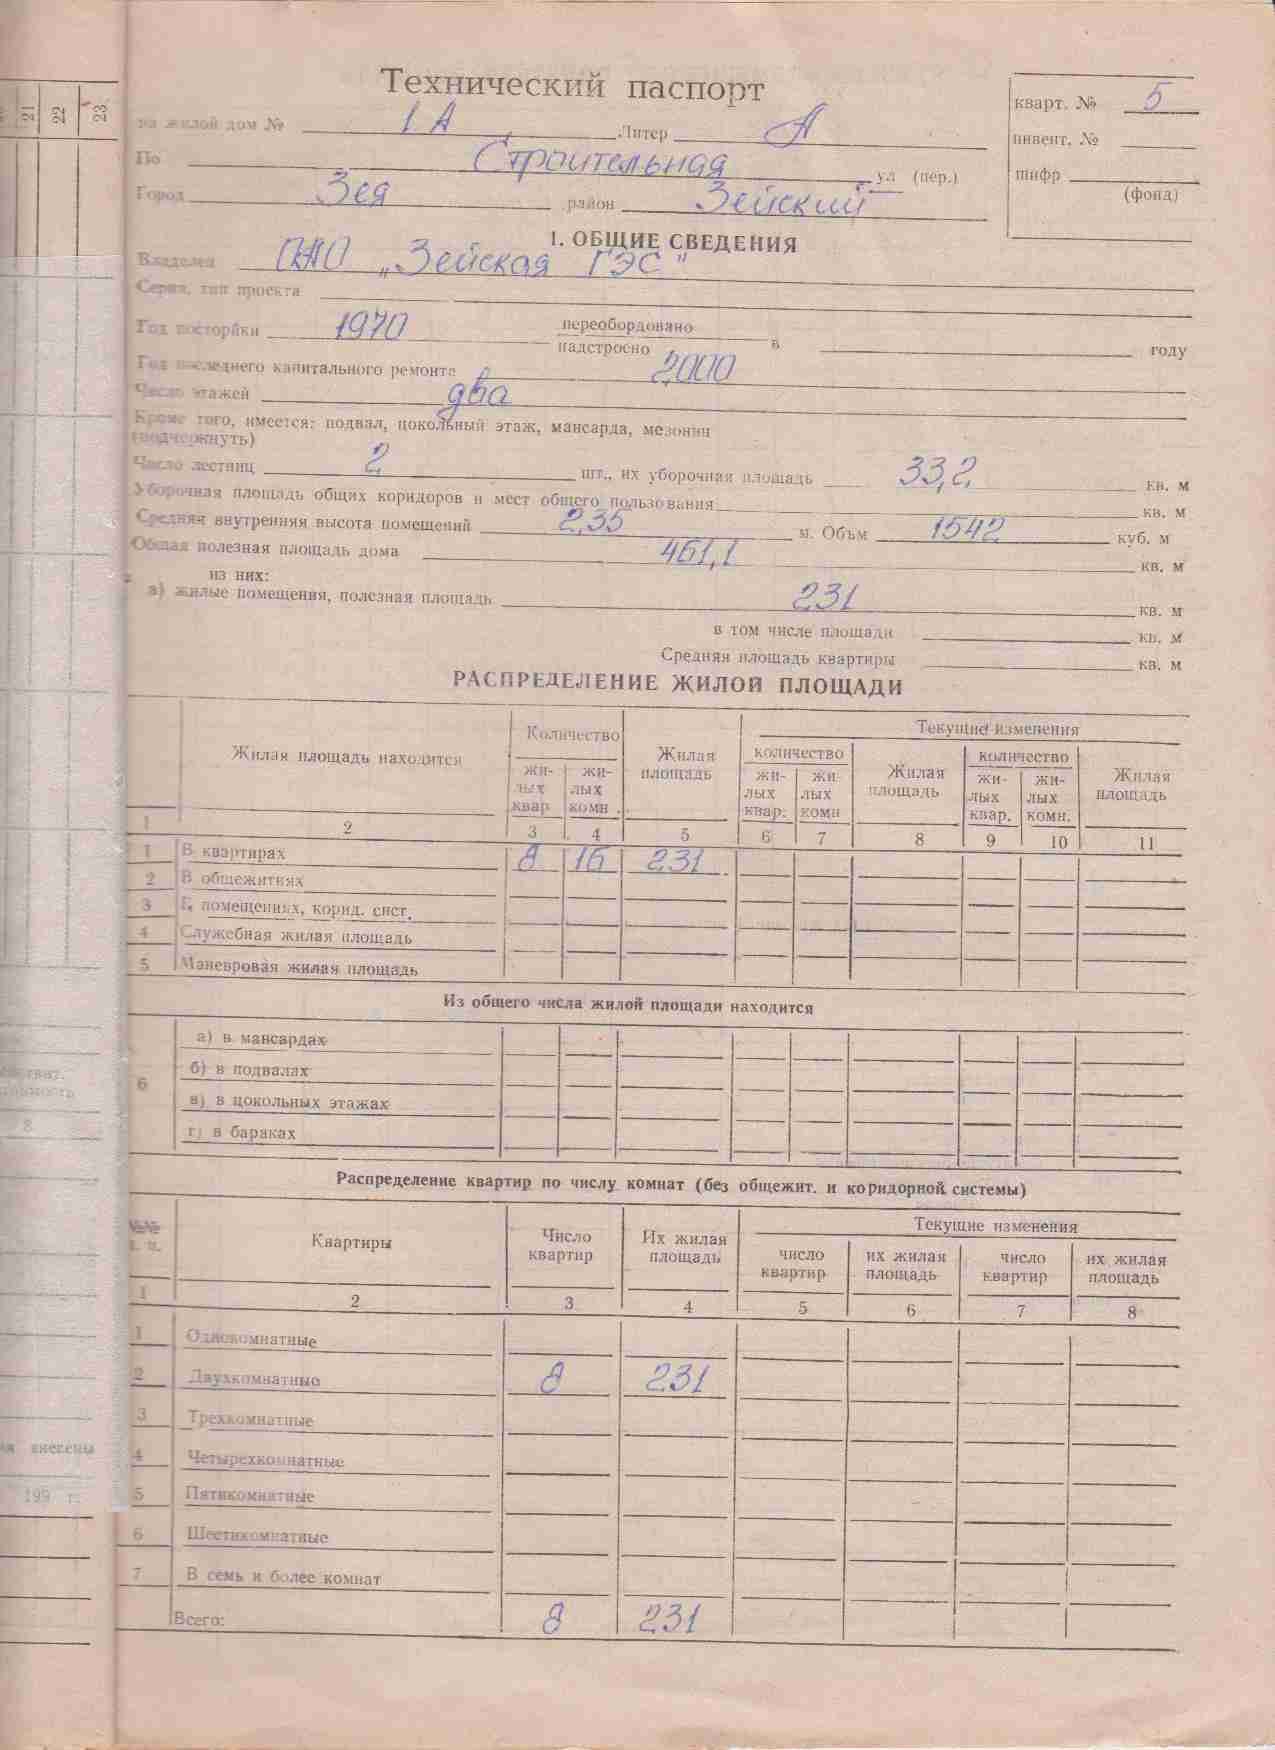 21 22 23
Технический паспорт
кварт. № 5
на жилой дом № 1 А Литер А
инвент. №
По Строительная ул (пер.)
шифр
(фонд)
Город Зея район Зейский
1. ОБЩИЕ СВЕДЕНИЯ
Владелец ПАО „Зейская ГЭС"
Серия, тип проекта
Год посторйки 1970 переобордовано
надстроено в году
Год последнего капитального ремонта 2000
Число этажей два
Кроме того, имеется: подвал, цокольный этаж, мансарда, мезонин
(подчеркнуть)
Число лестниц 2 шт., их уборочная площадь 33,2 кв. м
Уборочная площадь общих коридоров и мест общего пользования кв. м
Средняя внутренняя высота помещений 2,35 м. Объм 1542 куб. м
Общая полезная площадь дома 461,1 кв. м
из них:
а) жилые помещения, полезная площадь 231 кв. м
в том числе площади кв. м
Средняя площадь квартиры кв. м
РАСПРЕДЕЛЕНИЕ ЖИЛОЙ ПЛОЩАДИ
Жилая площадь находится
Количество
жи-
лых
квар
жи-
лых
комн.
Жилая
площадь
Текущие изменения
количество
жи-
лых
квар.
жи-
лых
комн
Жилая
площадь
количество
жи-
лых
квар.
жи-
лых
комн.
Жилая
площадь
1 2 3 4 5 6 7 8 9 10 11
1 В квартирах 8 16 231
2 В общежитиях
3 В помещениях, корид. сист.
4 Служебная жилая площадь
5 Маневровая жилая площадь
Из общего числа жилой площади находится
6
а) в мансардах
б) в подвалах
в) в цокольных этажах
г) в бараках
8
Распределение квартир по числу комнат (без общежит. и коридорной системы)
№№
п. п.
Квартиры
Число
квартир
Их жилая
площадь
Текущие изменения
число
квартир
их жилая
площадь
число
квартир
их жилая
площадь
1 2 3 4 5 6 7 8
1 Однокомнатные
2 Двухкомнатные 8 231
3 Трехкомнатные
4 Четырехкомнатные
внесены
5 Пятикомнатные
199 г.
6 Шестикомнатные
7 В семь и более комнат
Всего: 8 231